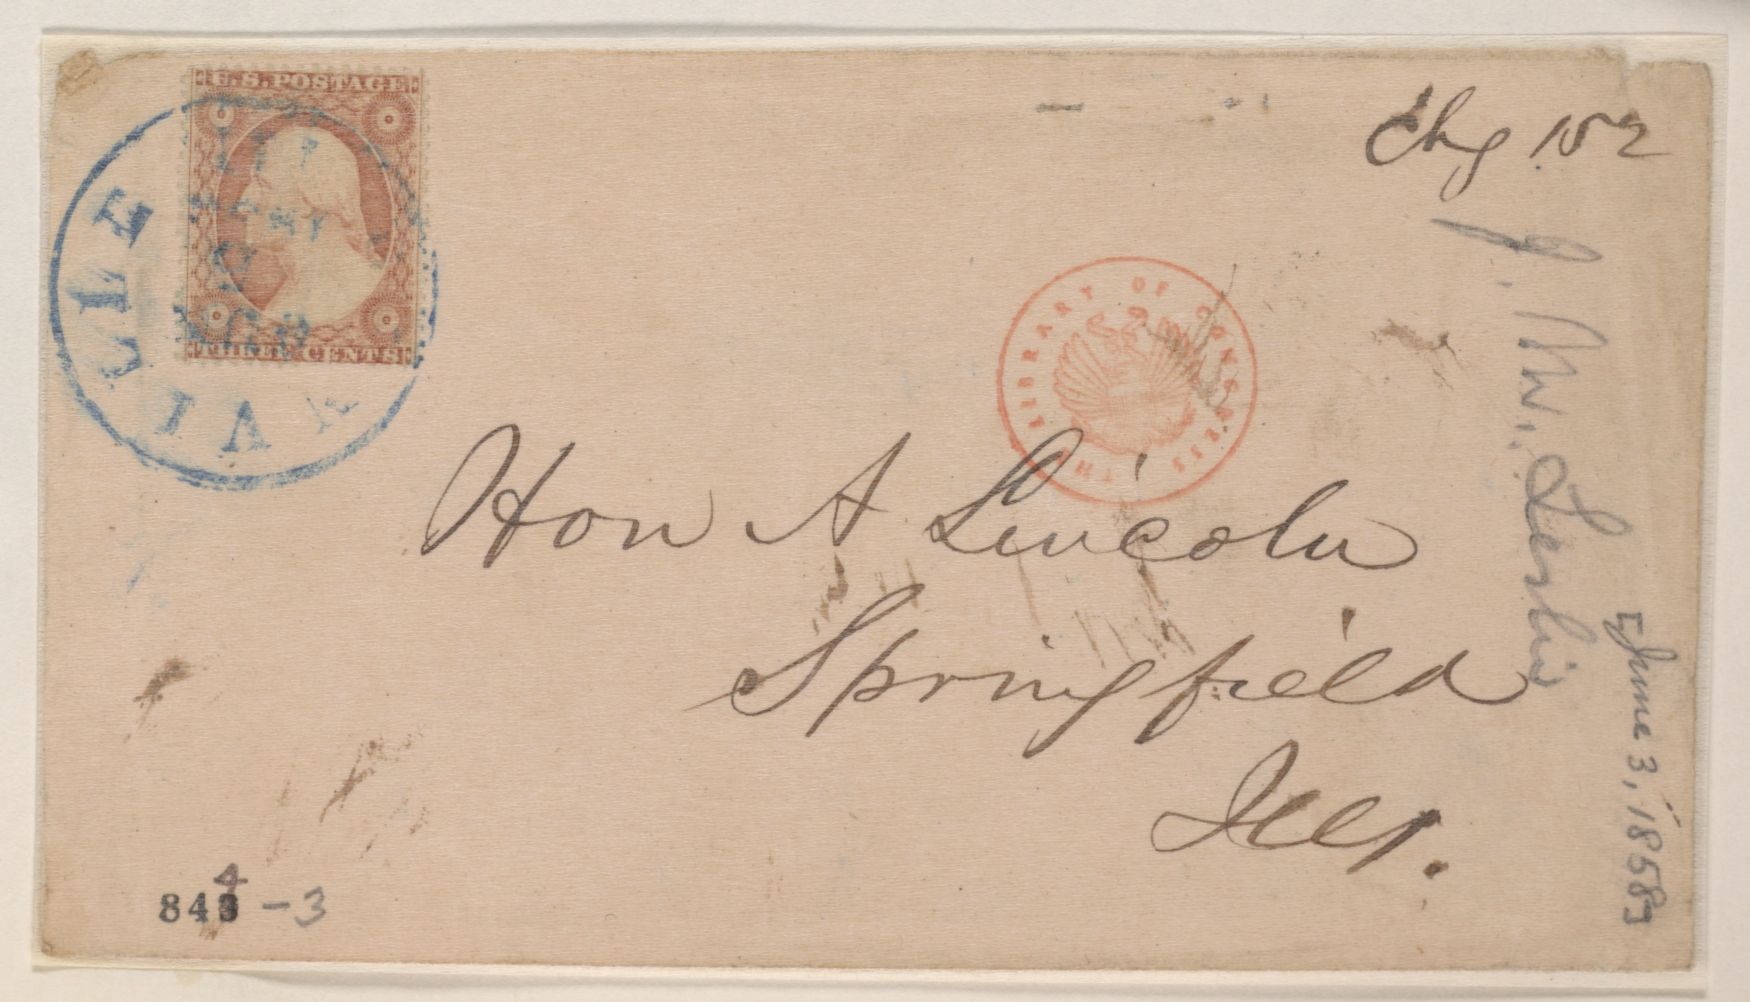 U.S. POSTAGE
THREE CENTS
VILLE
Chg 152
THE LIBRARY OF CONGRESS
Hon A Lincoln
Springfield
Ills.
J. W.
[June 3, 1858]
844-3